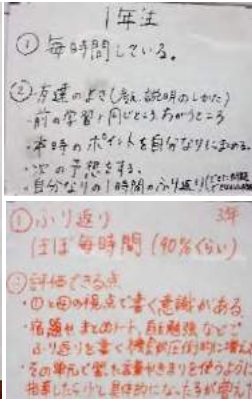 1年生
① 毎時間している。
② 友達のよさ(考え、説明のしかた)
・前の学習と同じところ、ちがうところ
・本時のポイントを自分なりにまとめる。
・次の予想をする。
・自分なりの1時間のふり返り
① ふり返り 3年
ほぼ毎時間 (90%くらい)
② 評価できる点
・①と②の視点で書く意識がある。
・宿題やまとめノート、自主勉強などで
ふり返りを書く機会が圧倒的に増えた
・その単元で習った言葉やきまりを使うように
指導したら少し具体的になった子が増えた